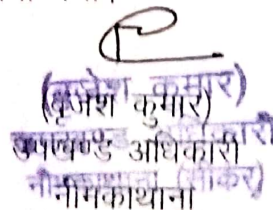 (बृजेश कुमार)
उपखण्ड अधिकारी
नीमकाथाना